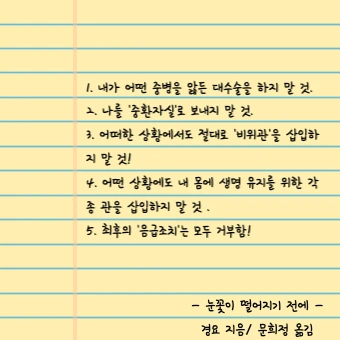 1. 내가 어떤 중병을 앓든 대수술을 하지 말 것.
2. 나를 '중환자실'로 보내지 말 것.
3. 어떠한 상황에서도 절대로 '비위관'을 삽입하
지 말 것!
4. 어떤 상황에도 내 몸에 생명 유지를 위한 각
종 관을 삽입하지 말 것 .
5. 최후의 '응급조치'는 모두 거부함!
- 눈꽃이 떨어지기 전에 -
경요 지음/ 문희정 옮김